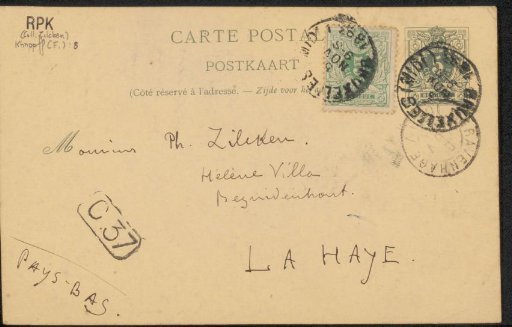 RPK
(Coll. Zilcken)
Khnopff (F.) 8
CARTE POSTA
POSTKAART
(Côté réservé à l'adresse. — Zijde voor h
BRUXELLES (MIDI)
BRUXELLES (MIDI)
5
GRAVENHAGE
Monsieur Ph. Zilcken.
Helène Villa
Bezuidenhout.
C 37
LA HAYE.
PAYS-BAS.